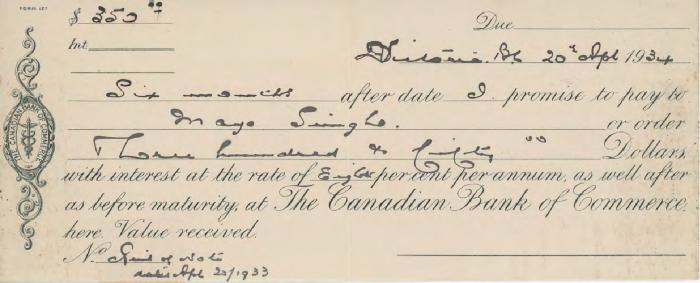 FORM 427
$ 350 00
Due
Int.
Victoria. B.C. 20th Apl 1934
Six months after date I promise to pay to
Mayo Singh. or order
Three hundred & fifty 00 Dollars,
with interest at the rate of Eight per cent per annum, as well after
as before maturity, at The Canadian Bank of Commerce
here. Value received.
No
of note
dated Apl 20/1933
THE CANADIAN BANK OF COMMERCE